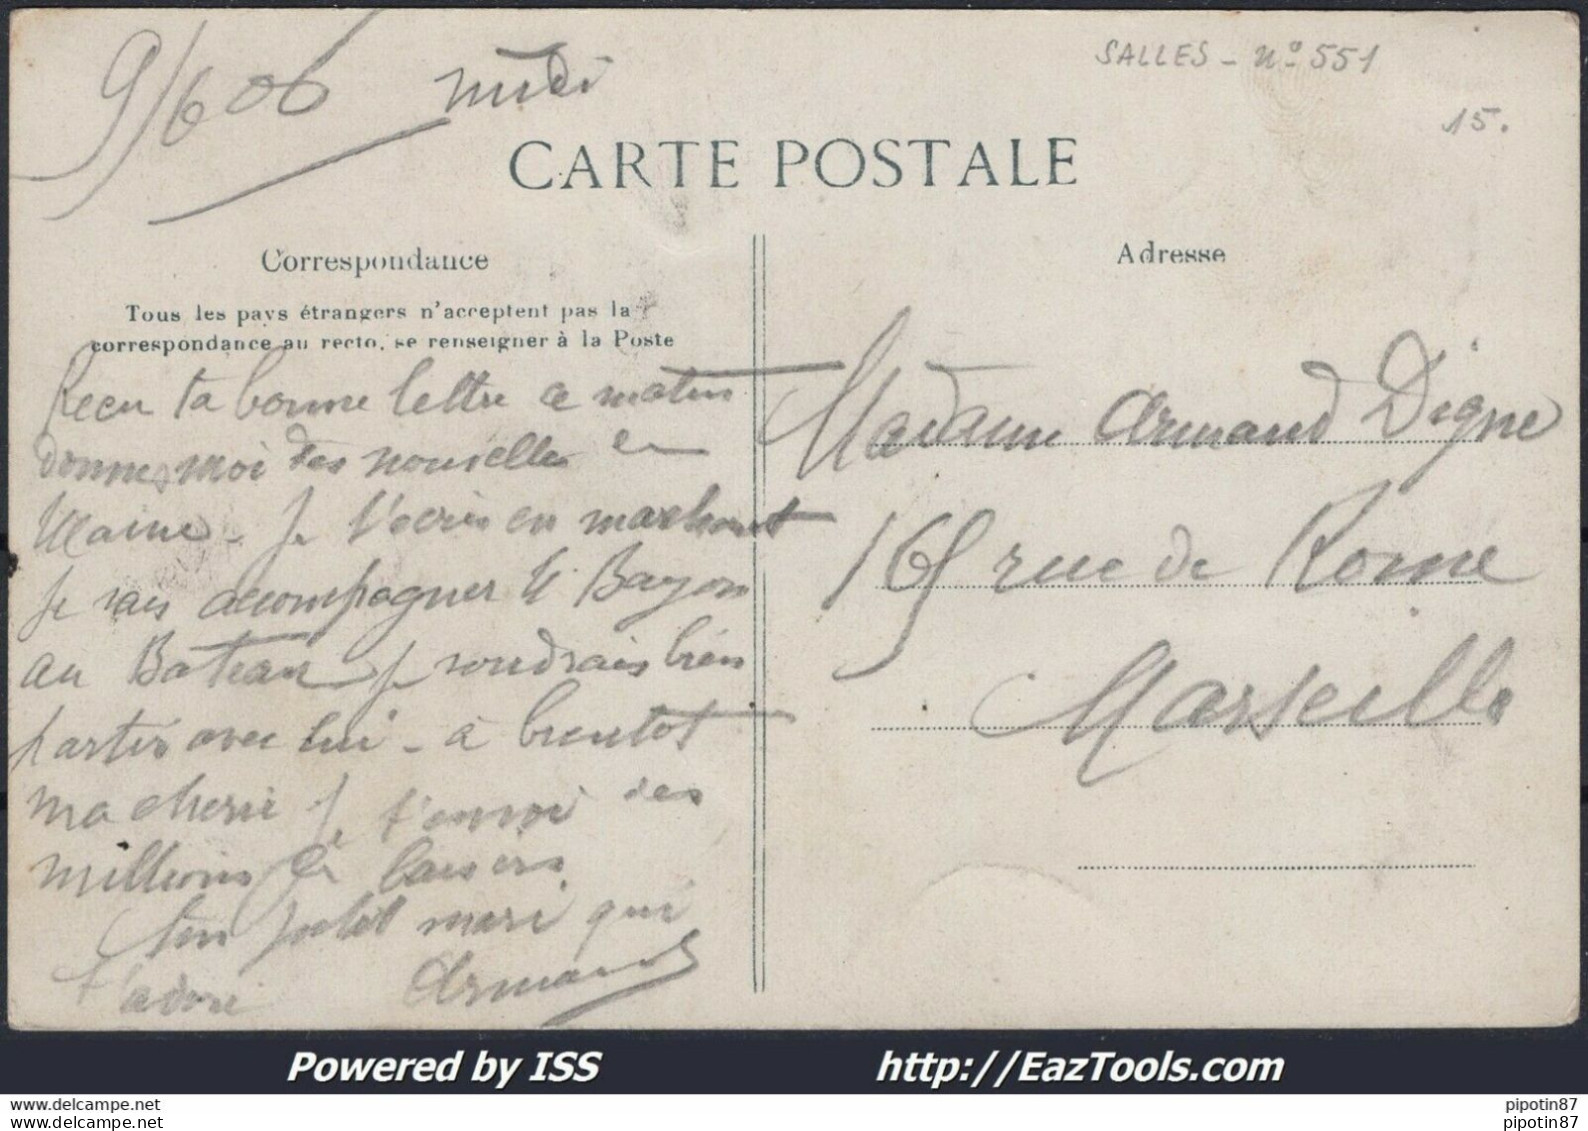 9/6 06 midi
SALLES - nº 551
15.
CARTE POSTALE
Correspondance
Tous les pays étrangers n'acceptent pas la
correspondance au recto, se renseigner à la Poste
Adresse
Recu ta bonne lettre ce matin
donnes moi des nouvelles en
Maine - Je t'ecris en marchant
Je vais accompagner Mr Bayon
au Bateau je voudrais bien
partir avec lui - à bientot
ma cherie Je t'envoi des
millions de baisers
Ton petit mari qui
t'adore Armand
Madame Armand Digne
165 rue de Rome
Marseille
Powered by ISS http://EazTools.com
delcampe.net
delcampe.net
pipotin87
pipotin87